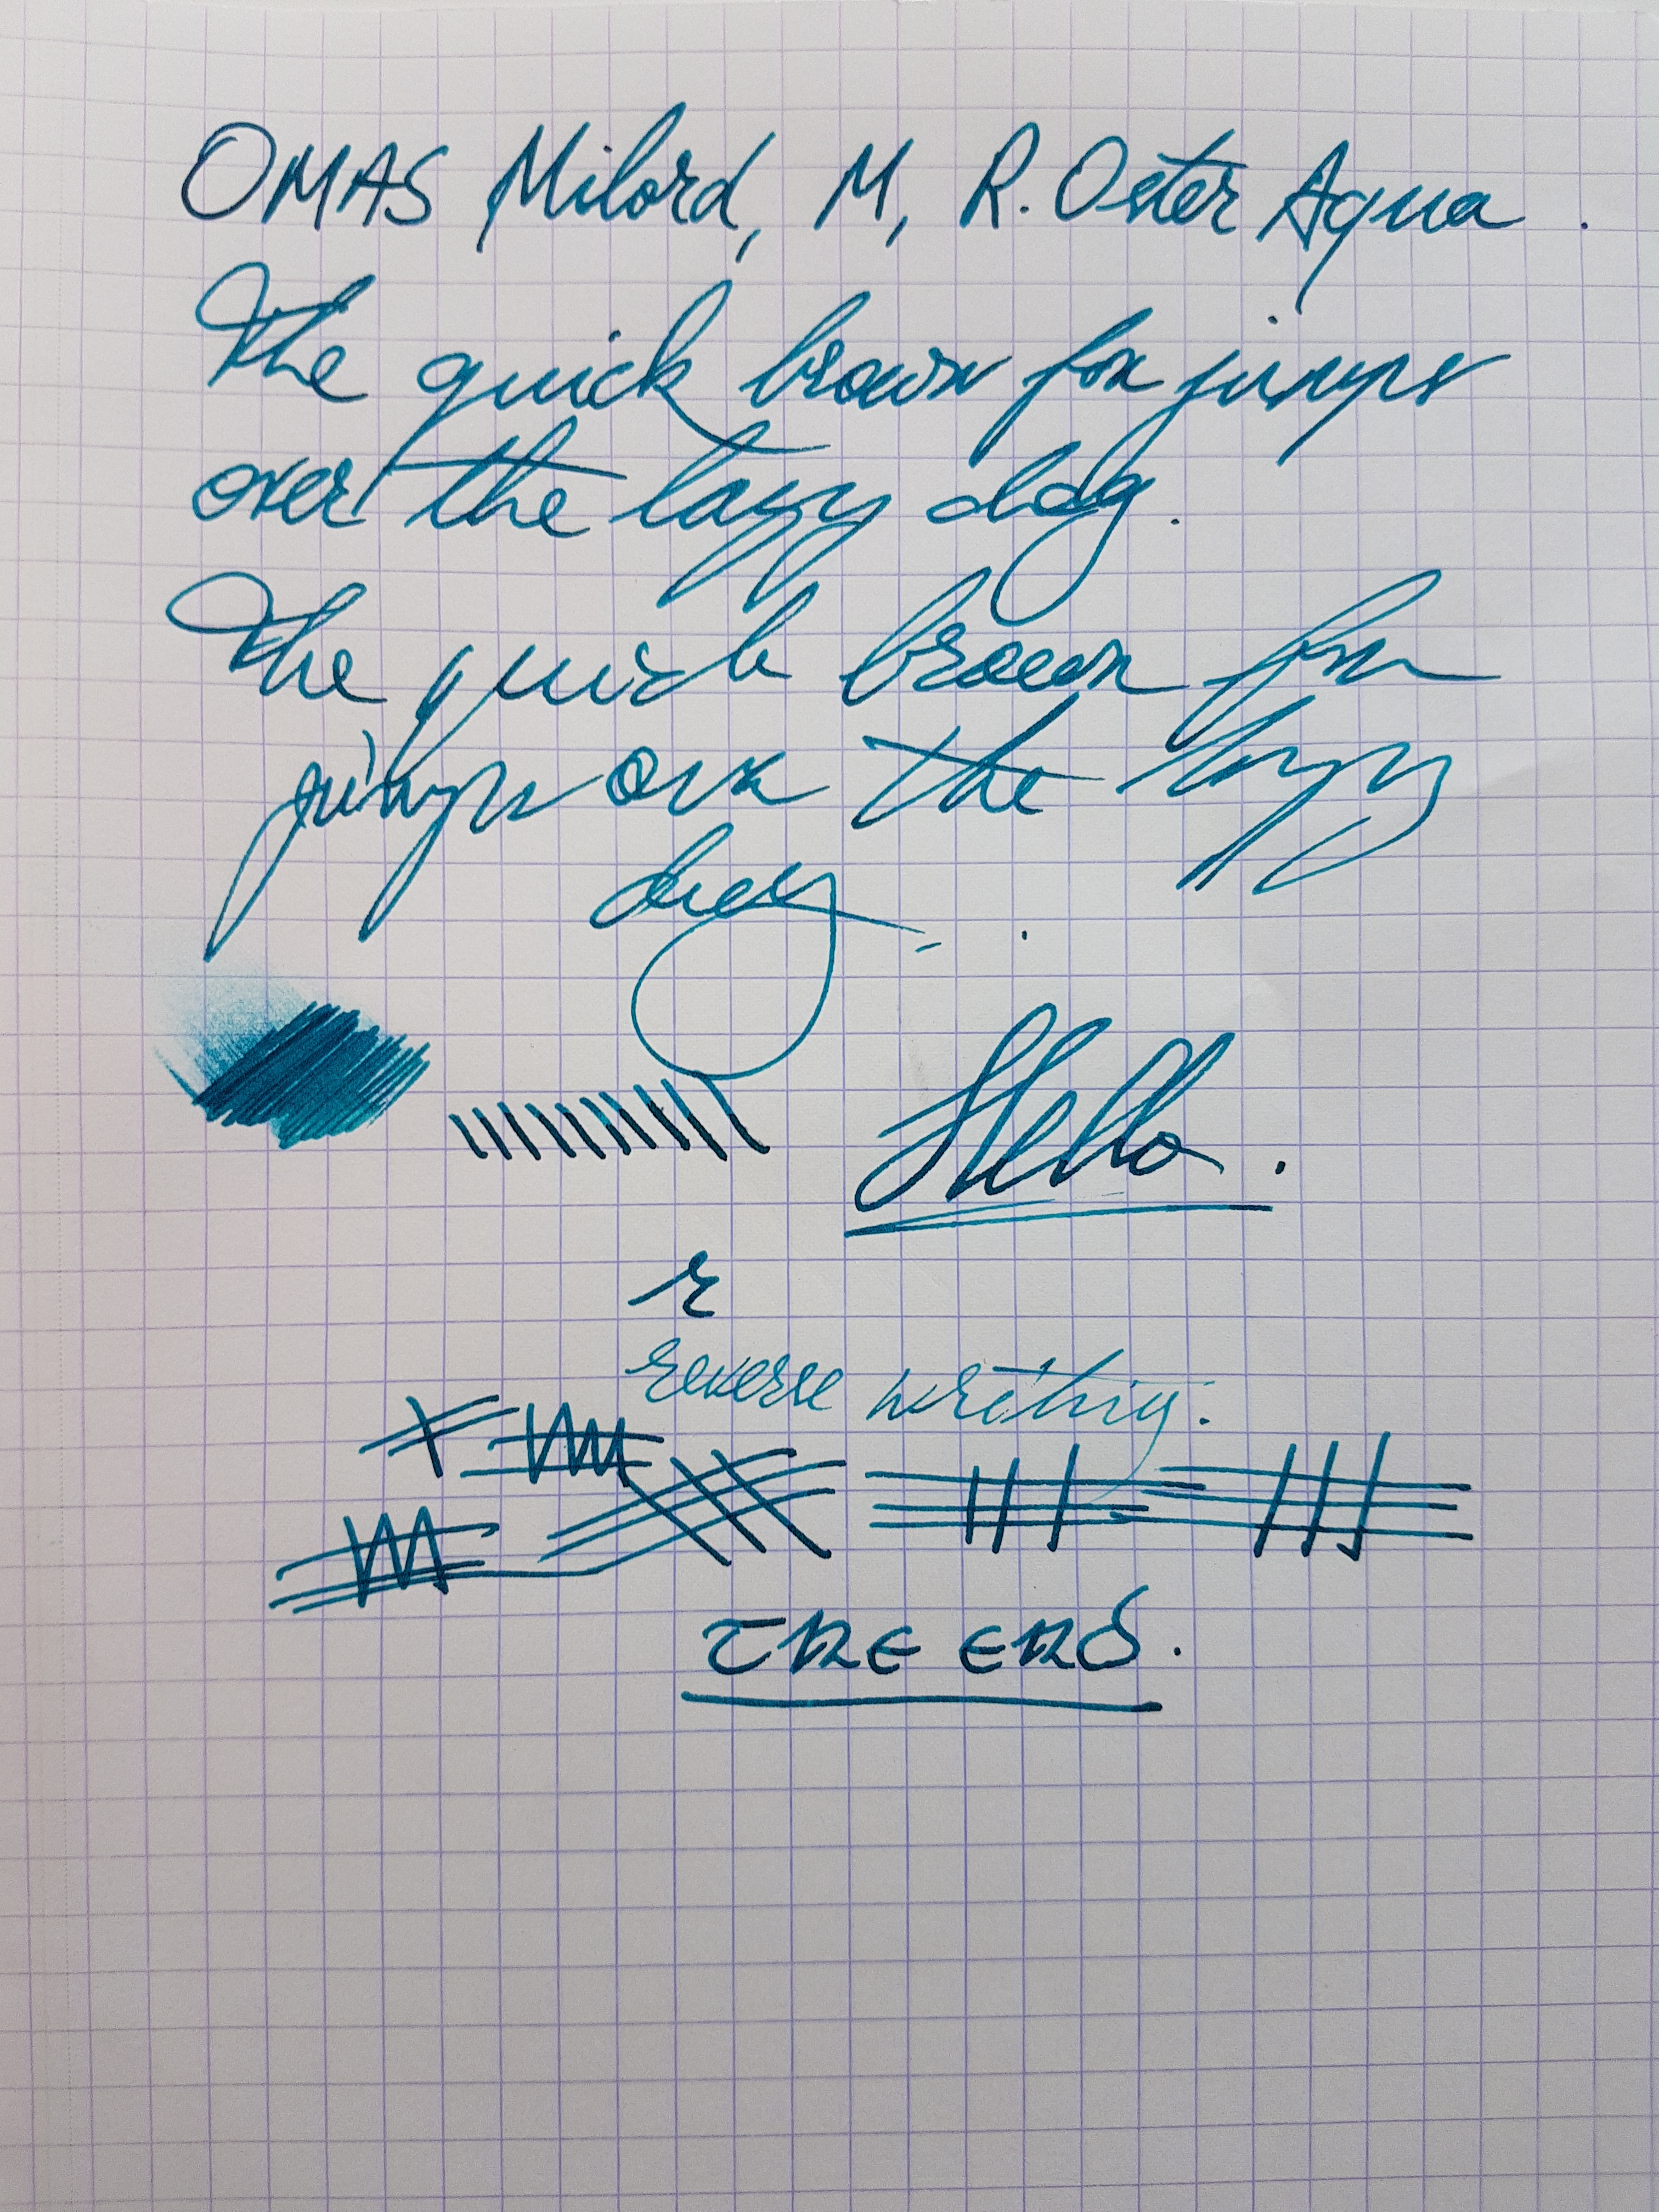 OMAS Milord, M, R. Oster Aqua.
The quick brown fox jumps
over the lazy dog.
The quick brown fox
jumps over the lazy
dog.
Hello.
r
reverse writing.
THE END.